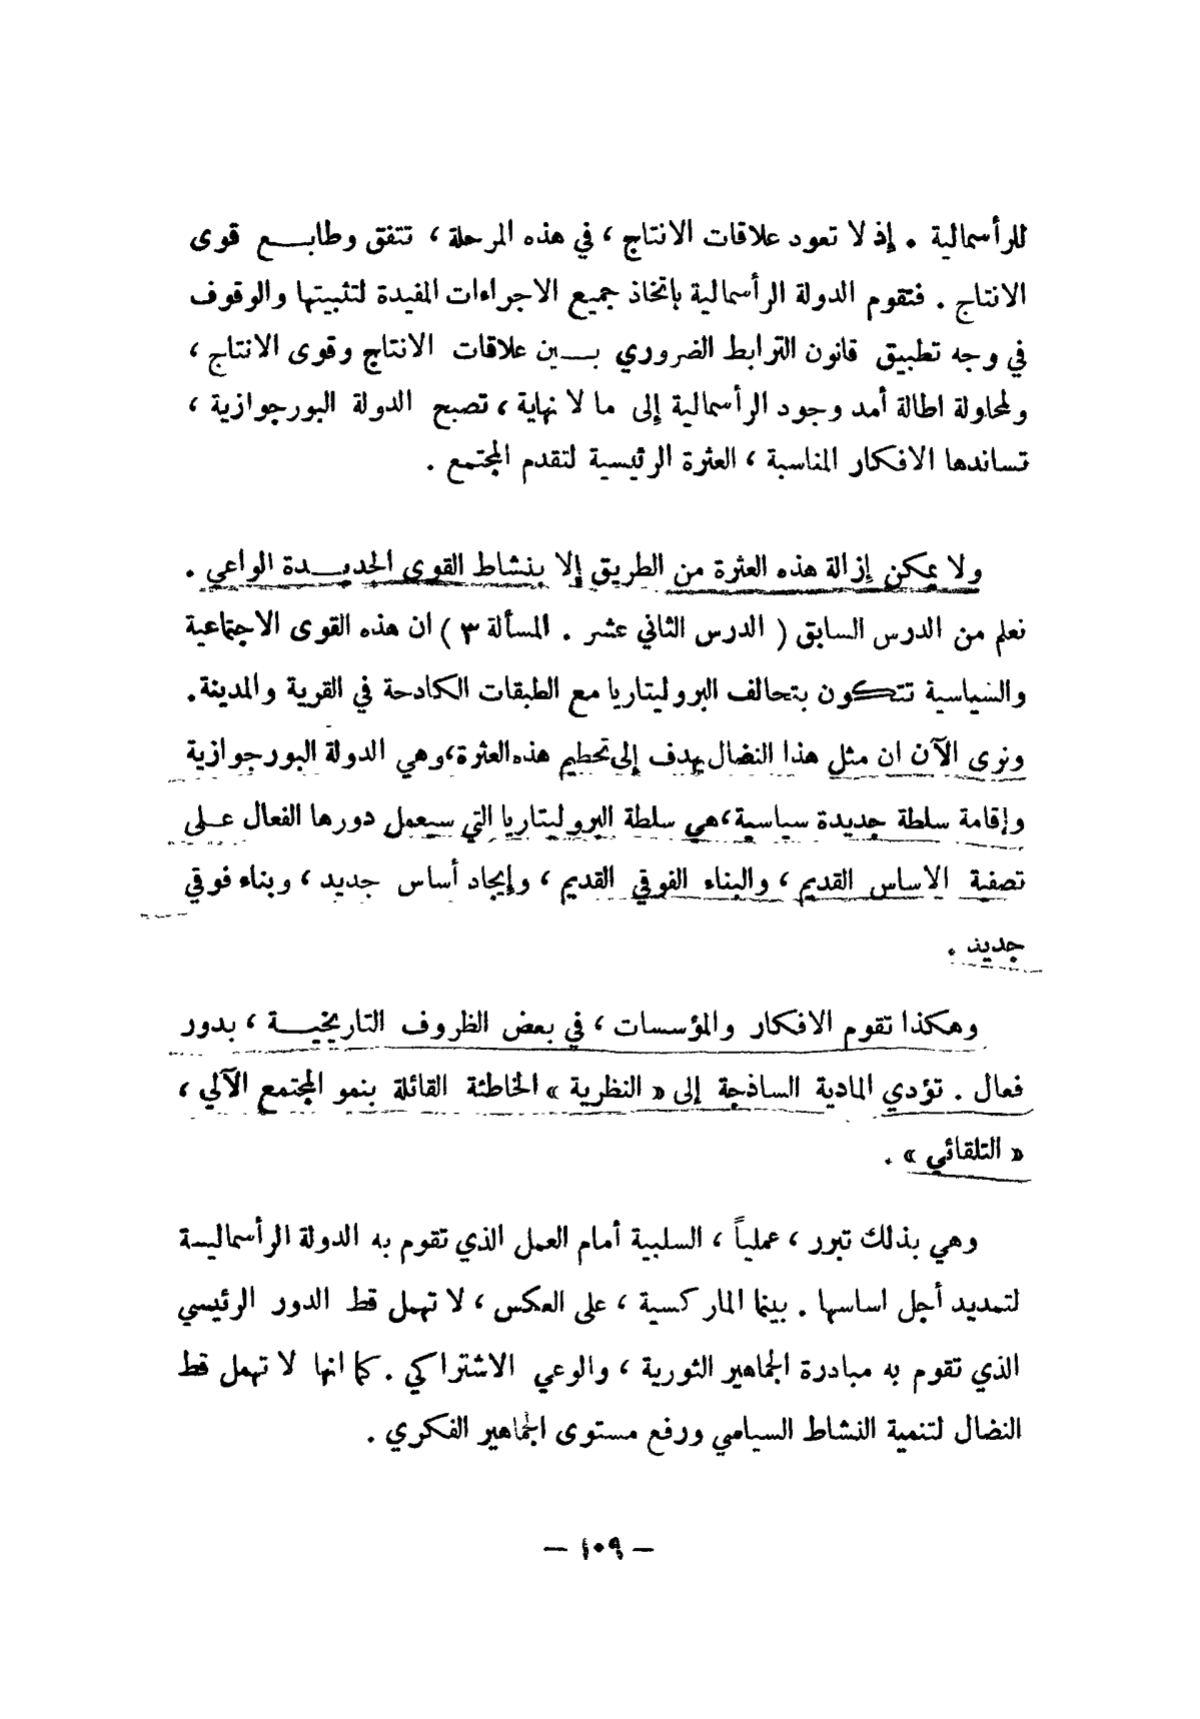 للرأسمالية . إذ لا تعود علاقات الانتاج ، في هذه المرحلة ، تتفق وطابع قوى
الانتاج . فتقوم الدولة الرأسمالية بإتخاذ جميع الاجراءات المفيدة لتثبيتها والوقوف
في وجه تطبيق قانون الترابط الضروري بين علاقات الانتاج وقوى الانتاج ،
ولمحاولة اطالة أمد وجود الرأسمالية إلى ما لا نهاية ، تصبح الدولة البورجوازية ،
تساندها الافكار المناسبة ، العثرة الرئيسية لتقدم المجتمع .
ولا يمكن إزالة هذه العثرة من الطريق إلا بنشاط القوى الجديدة الواعي .
نعلم من الدرس السابق ( الدرس الثاني عشر . المسألة ٣ ) ان هذه القوى الاجتماعية
والسياسية تتكون بتحالف البروليتاريا مع الطبقات الكادحة في القرية والمدينة .
ونرى الآن ان مثل هذا النضال يهدف إلى تحطيم هذه العثرة ، وهي الدولة البورجوازية
وإقامة سلطة جديدة سياسية ، هي سلطة البروليتاريا التي سيعمل دورها الفعال على
تصفية الاساس القديم ، والبناء الفوقي القديم ، وإيجاد أساس جديد ، وبناء فوقي
جديد .
وهكذا تقوم الافكار والمؤسسات ، في بعض الظروف التاريخية ، بدور
فعال . تؤدي المادية الساذجة إلى « النظرية » الخاطئة القائلة بنمو المجتمع الآلي ،
« التلقائي » .
وهي بذلك تبرر ، عملياً ، السلبية أمام العمل الذي تقوم به الدولة الرأسمالية
لتمديد أجل اساسها . بينما الماركسية ، على العكس ، لا تهمل قط الدور الرئيسي
الذي تقوم به مبادرة الجماهير الثورية ، والوعي الاشتراكي . كما انها لا تهمل قط
النضال لتنمية النشاط السياسي ورفع مستوى الجماهير الفكري .
— ١٠٩ —